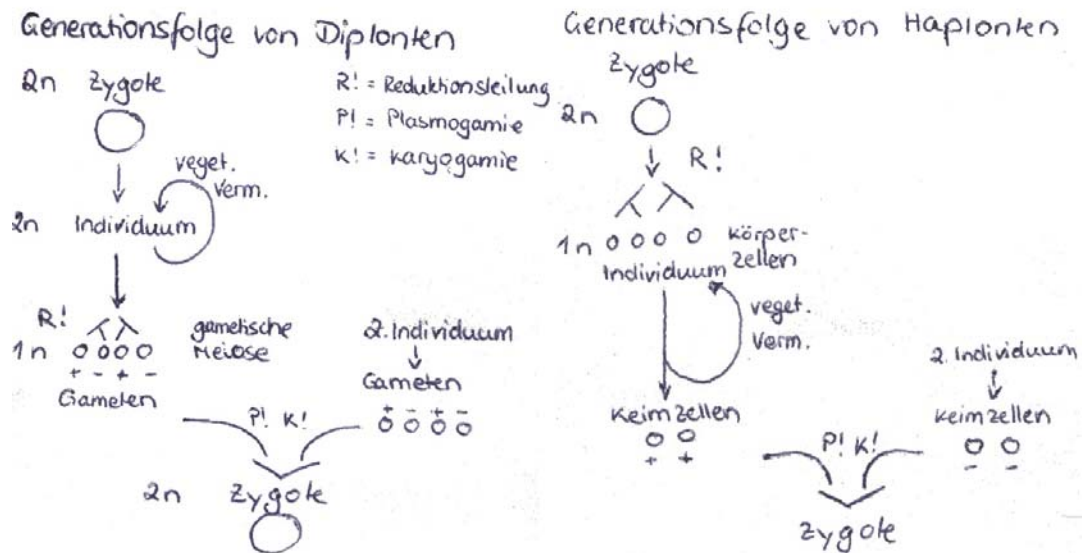 Generationsfolge von Diplonten
2n Zygote
R! = Reduktionsteilung
P! = Plasmogamie
K! = Karyogamie
veget.
Verm.
2n Individuum
R!
1n
+ - + -
Gameten
gametische
Meiose
2. Individuum
Gameten
+ - + -
P! K!
2n Zygote
Generationsfolge von Haplonten
Zygote
2n
R!
1n
körper-
zellen
Individuum
veget.
Verm.
Keimzellen
+ +
2. Individuum
Keimzellen
- -
P! K!
Zygote